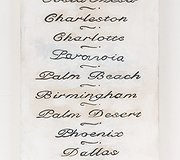 Charleston
Charlotte
Paranoia
Palm Beach
Birmingham
Palm Desert
Phoenix
Dallas